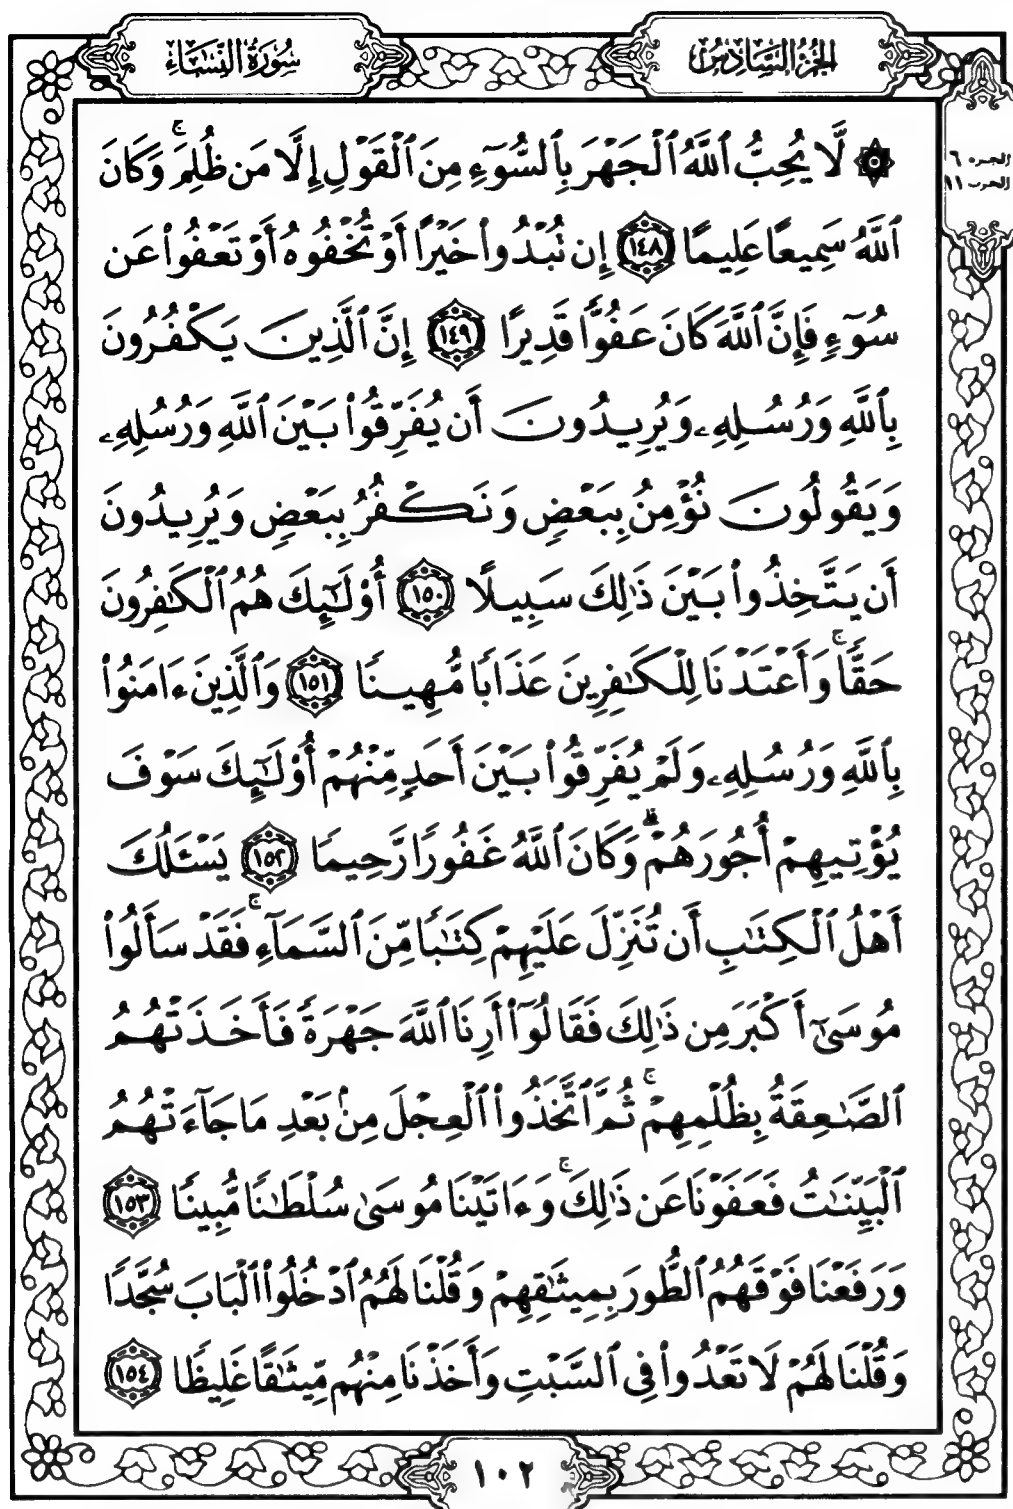 سُورَةُ النِّسَاءِ
الجُزْءُ السَّادِسُ
الجزء ٦
الحزب ١١
۞ لَّا يُحِبُّ ٱللَّهُ ٱلْجَهْرَ بِٱلسُّوٓءِ مِنَ ٱلْقَوْلِ إِلَّا مَن ظُلِمَۚ وَكَانَ
ٱللَّهُ سَمِيعًا عَلِيمًا ١٤٨ إِن تُبْدُوا۟ خَيْرًا أَوْ تُخْفُوهُ أَوْ تَعْفُوا۟ عَن
سُوٓءٍ فَإِنَّ ٱللَّهَ كَانَ عَفُوًّا قَدِيرًا ١٤٩ إِنَّ ٱلَّذِينَ يَكْفُرُونَ
بِٱللَّهِ وَرُسُلِهِۦ وَيُرِيدُونَ أَن يُفَرِّقُوا۟ بَيْنَ ٱللَّهِ وَرُسُلِهِۦ
وَيَقُولُونَ نُؤْمِنُ بِبَعْضٍ وَنَكْفُرُ بِبَعْضٍ وَيُرِيدُونَ
أَن يَتَّخِذُوا۟ بَيْنَ ذَٰلِكَ سَبِيلًا ١٥٠ أُو۟لَٰٓئِكَ هُمُ ٱلْكَٰفِرُونَ
حَقًّاۚ وَأَعْتَدْنَا لِلْكَٰفِرِينَ عَذَابًا مُّهِينًا ١٥١ وَٱلَّذِينَ ءَامَنُوا۟
بِٱللَّهِ وَرُسُلِهِۦ وَلَمْ يُفَرِّقُوا۟ بَيْنَ أَحَدٍ مِّنْهُمْ أُو۟لَٰٓئِكَ سَوْفَ
يُؤْتِيهِمْ أُجُورَهُمْۗ وَكَانَ ٱللَّهُ غَفُورًا رَّحِيمًا ١٥٢ يَسْـَٔلُكَ
أَهْلُ ٱلْكِتَٰبِ أَن تُنَزِّلَ عَلَيْهِمْ كِتَٰبًا مِّنَ ٱلسَّمَآءِۚ فَقَدْ سَأَلُوا۟
مُوسَىٰٓ أَكْبَرَ مِن ذَٰلِكَ فَقَالُوٓا۟ أَرِنَا ٱللَّهَ جَهْرَةً فَأَخَذَتْهُمُ
ٱلصَّٰعِقَةُ بِظُلْمِهِمْۚ ثُمَّ ٱتَّخَذُوا۟ ٱلْعِجْلَ مِنۢ بَعْدِ مَا جَآءَتْهُمُ
ٱلْبَيِّنَٰتُ فَعَفَوْنَا عَن ذَٰلِكَۚ وَءَاتَيْنَا مُوسَىٰ سُلْطَٰنًا مُّبِينًا ١٥٣
وَرَفَعْنَا فَوْقَهُمُ ٱلطُّورَ بِمِيثَٰقِهِمْ وَقُلْنَا لَهُمُ ٱدْخُلُوا۟ ٱلْبَابَ سُجَّدًا
وَقُلْنَا لَهُمْ لَا تَعْدُوا۟ فِى ٱلسَّبْتِ وَأَخَذْنَا مِنْهُم مِّيثَٰقًا غَلِيظًا ١٥٤
١٠٢